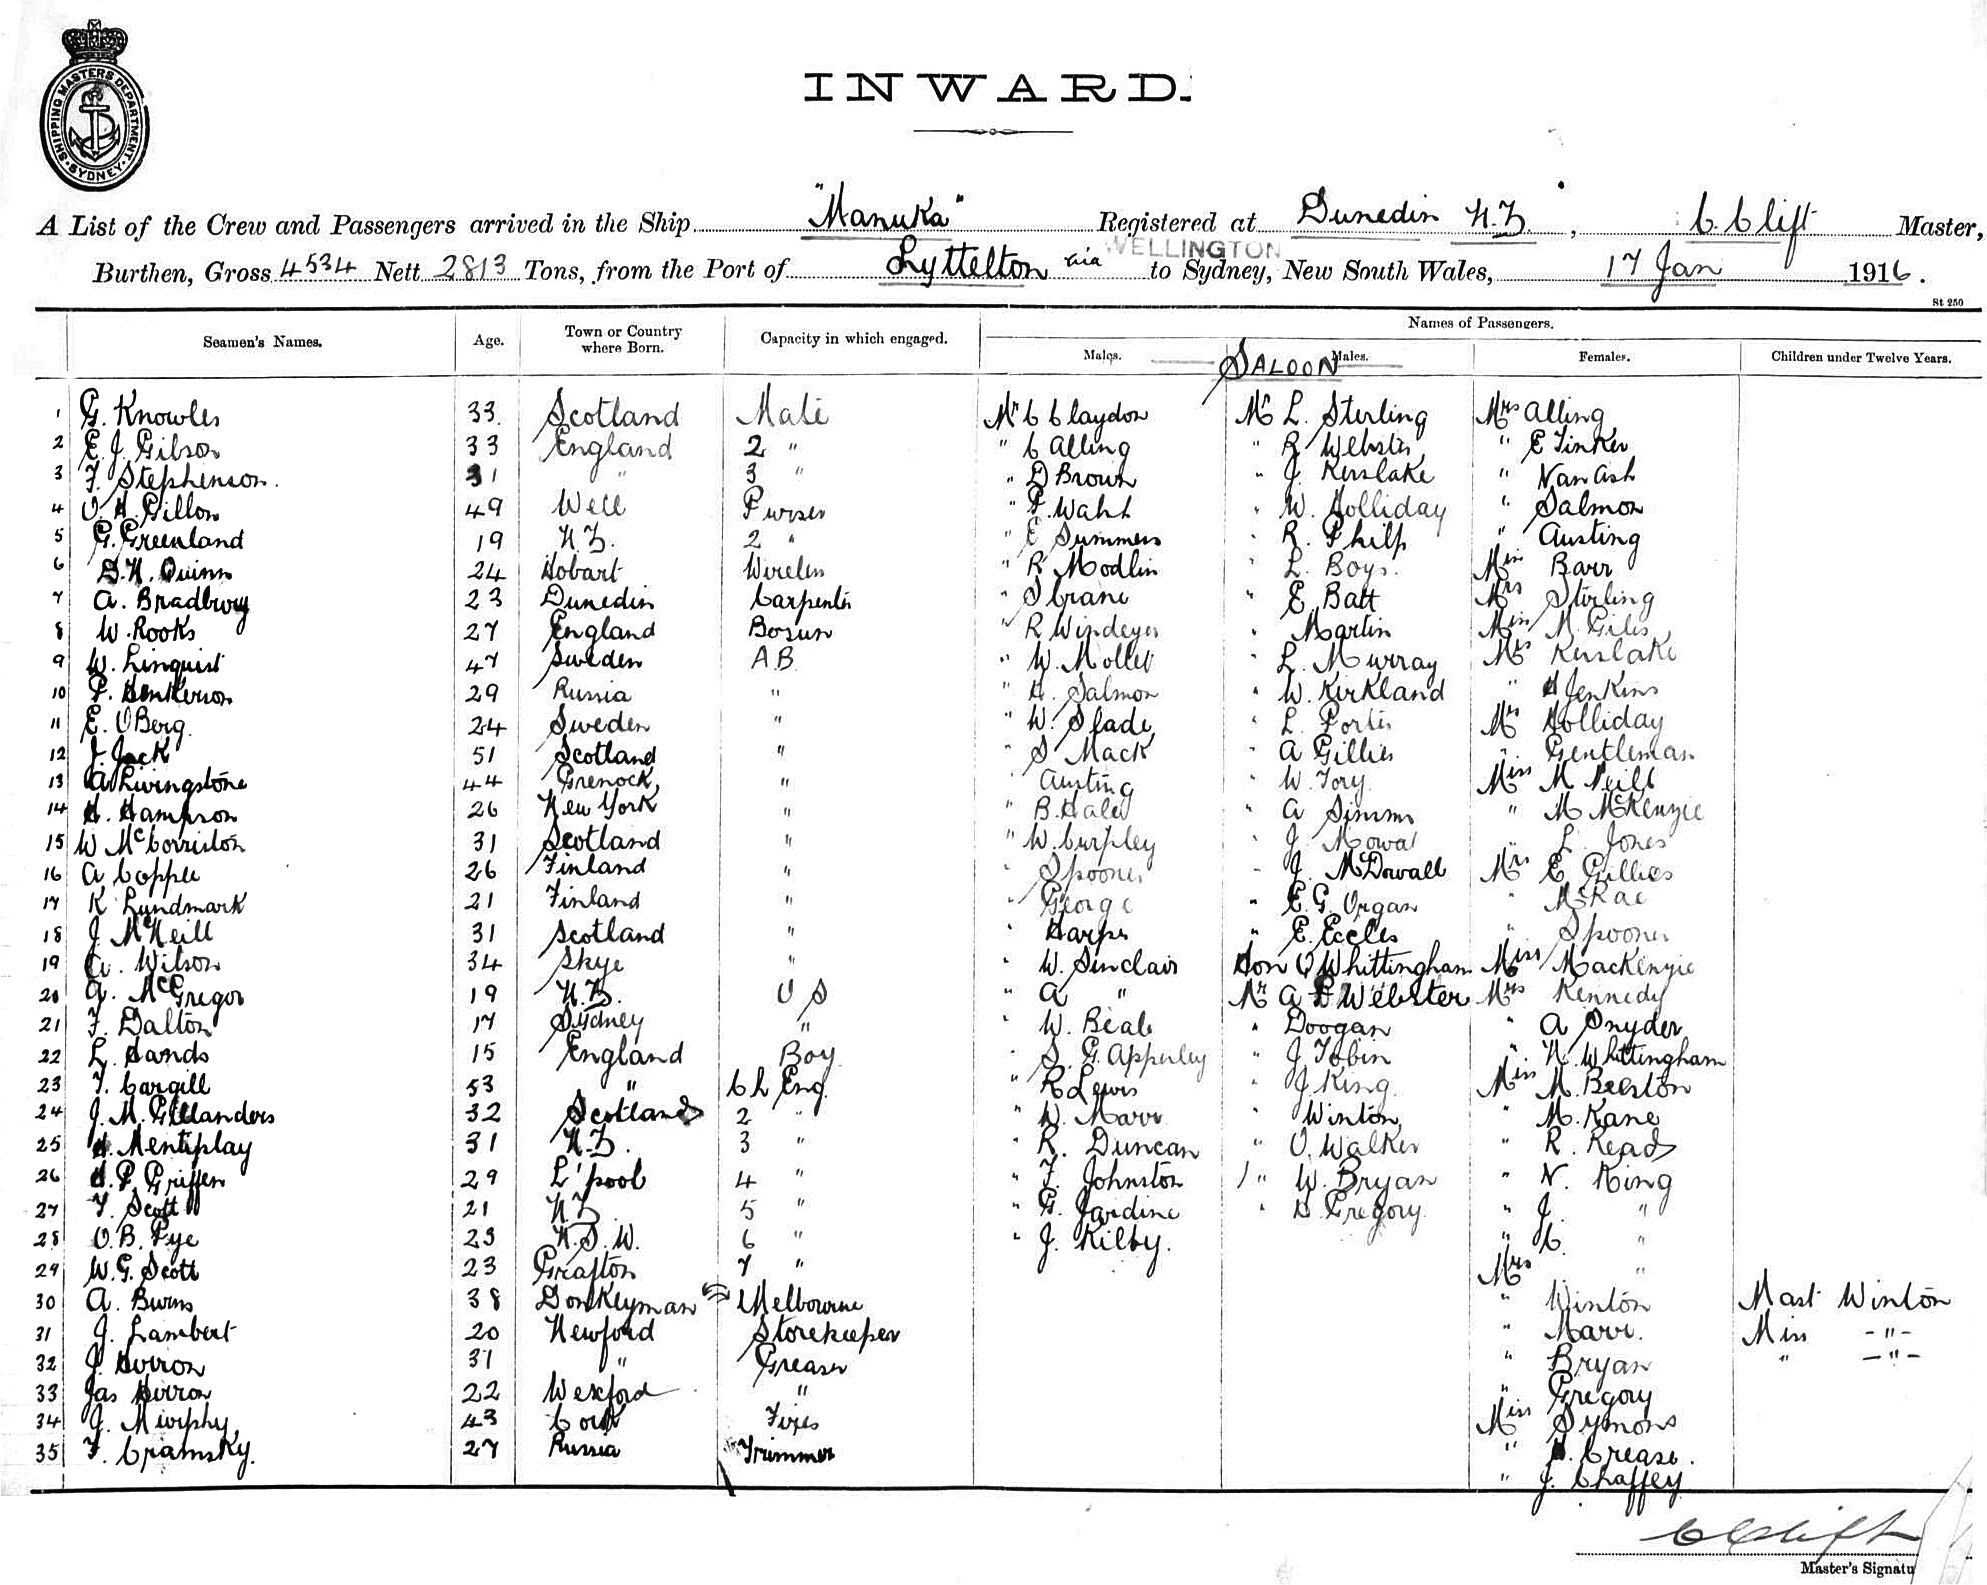 SHIPPING MASTERS DEPARTMENT. SYDNEY
INWARD.
A List of the Crew and Passengers arrived in the Ship "Manuka" Registered at Dunedin N.Z., C. Clift Master,
Burthen, Gross 4534 Nett 2813 Tons, from the Port of Lyttelton via WELLINGTON to Sydney, New South Wales, 17 Jan 1916.
St 250
Seamen's Names. Age. Town or Country where Born. Capacity in which engaged. Names of Passengers.
Males. SALOON Males. Females. Children under Twelve Years.
1 G. Knowles 33 Scotland Mate Mr C Claydon Mr L. Sterling Mrs Alling
2 E. J. Gibson 33 England 2 " " C Alling " R Webster " E Tinker
3 F. Stephenson. 31 " 3 " " D Brown " J Kerslake " Van Ash
4 O. H. Gillon 49 Well Purser " F. Wahl " W. Holliday " Salmon
5 G. Greenland 19 N.Z. 2 " " E Summers " R. Philp " Austing
6 D. H. Quinn 24 Hobart Wireless " R Modlin " L. Boys. Miss Barr
7 A. Bradbury 23 Dunedin Carpenter " S Crane " E Batt Mrs Sterling
8 W. Rooks 27 England Bosun " R Windeyer " Martin Miss M. Giles
9 W. Linquist 47 Sweden A B " W. Mollet " L. Murray Mrs Kerslake
10 P. Henkerson 29 Russia " " H. Salmon " W. Kirkland " H Jenkins
11 E. OBerg 24 Sweden " " W. Slade " L. Porter Mrs Holliday
12 J. Jack 51 Scotland " " S Mack " A Gillies " Gentleman
13 A Livingstone 44 Grenock " " Austing " W. Tory Miss M Neill
14 H. Hampson 26 New York " " B. Hales " A Simms " M McKenzie
15 W McCorriston 31 Scotland " " W. Curpley " J. Mowat " L. Jones
16 A Copple 26 Finland " " Spooner " J. McDowall Mrs E Gillies
17 K Lyndmark 21 Finland " " George " E. G. Organ " McRae
18 J. McNeill 31 Scotland " " Harper " E. Eccles " Spooner
19 A. Wilson 34 Skye " " W. Sinclair Hon O Whittingham Miss MacKenzie
20 A. McGregor 19 N.Z. O S " A " Mr A L Webster Mrs Kennedy
21 F. Dalton 17 Sydney " " W. Beale " Doogan " A Snyder
22 L. Sands 15 England Boy " S. G Apperley " J Tobin " N. Whittingham
23 T. Cargill 53 " Ch Eng. " R Lewis " J. King Miss M. Beeston
24 J. M. Gillanders 32 Scotland 2 " " W. Marr " Winton " M. Kane
25 H. Mentiplay 31 N.Z. 3 " " R. Duncan " O. Walker " R. Reads
26 H. P. Griffen 29 L'pool 4 " " F. Johnston " W. Bryan " N. King
27 T. Scott 21 N.Z. 5 " " G. Jardine " D. Gregory " J. "
28 O. B. Pye 23 N.S.W. 6 " " J. Kilby. " C. "
29 W. G. Scott 23 Grafton 7 " Mrs "
30 A. Burns 38 Donkeyman Melbourne " Winton Mast Winton
31 J. Lambert 20 Newford Storekeeper " Marr. Miss -"-
32 J. Horron 31 " Greaser " Bryan " -"-
33 Jas Horron 22 Wexford " " Gregory
34 J. Murphy 43 Cork Fires Miss Symons
35 F. Cramsky. 27 Russia Trimmer " H. Crease.
" J. Chaffey
C Clift
Master's Signatu